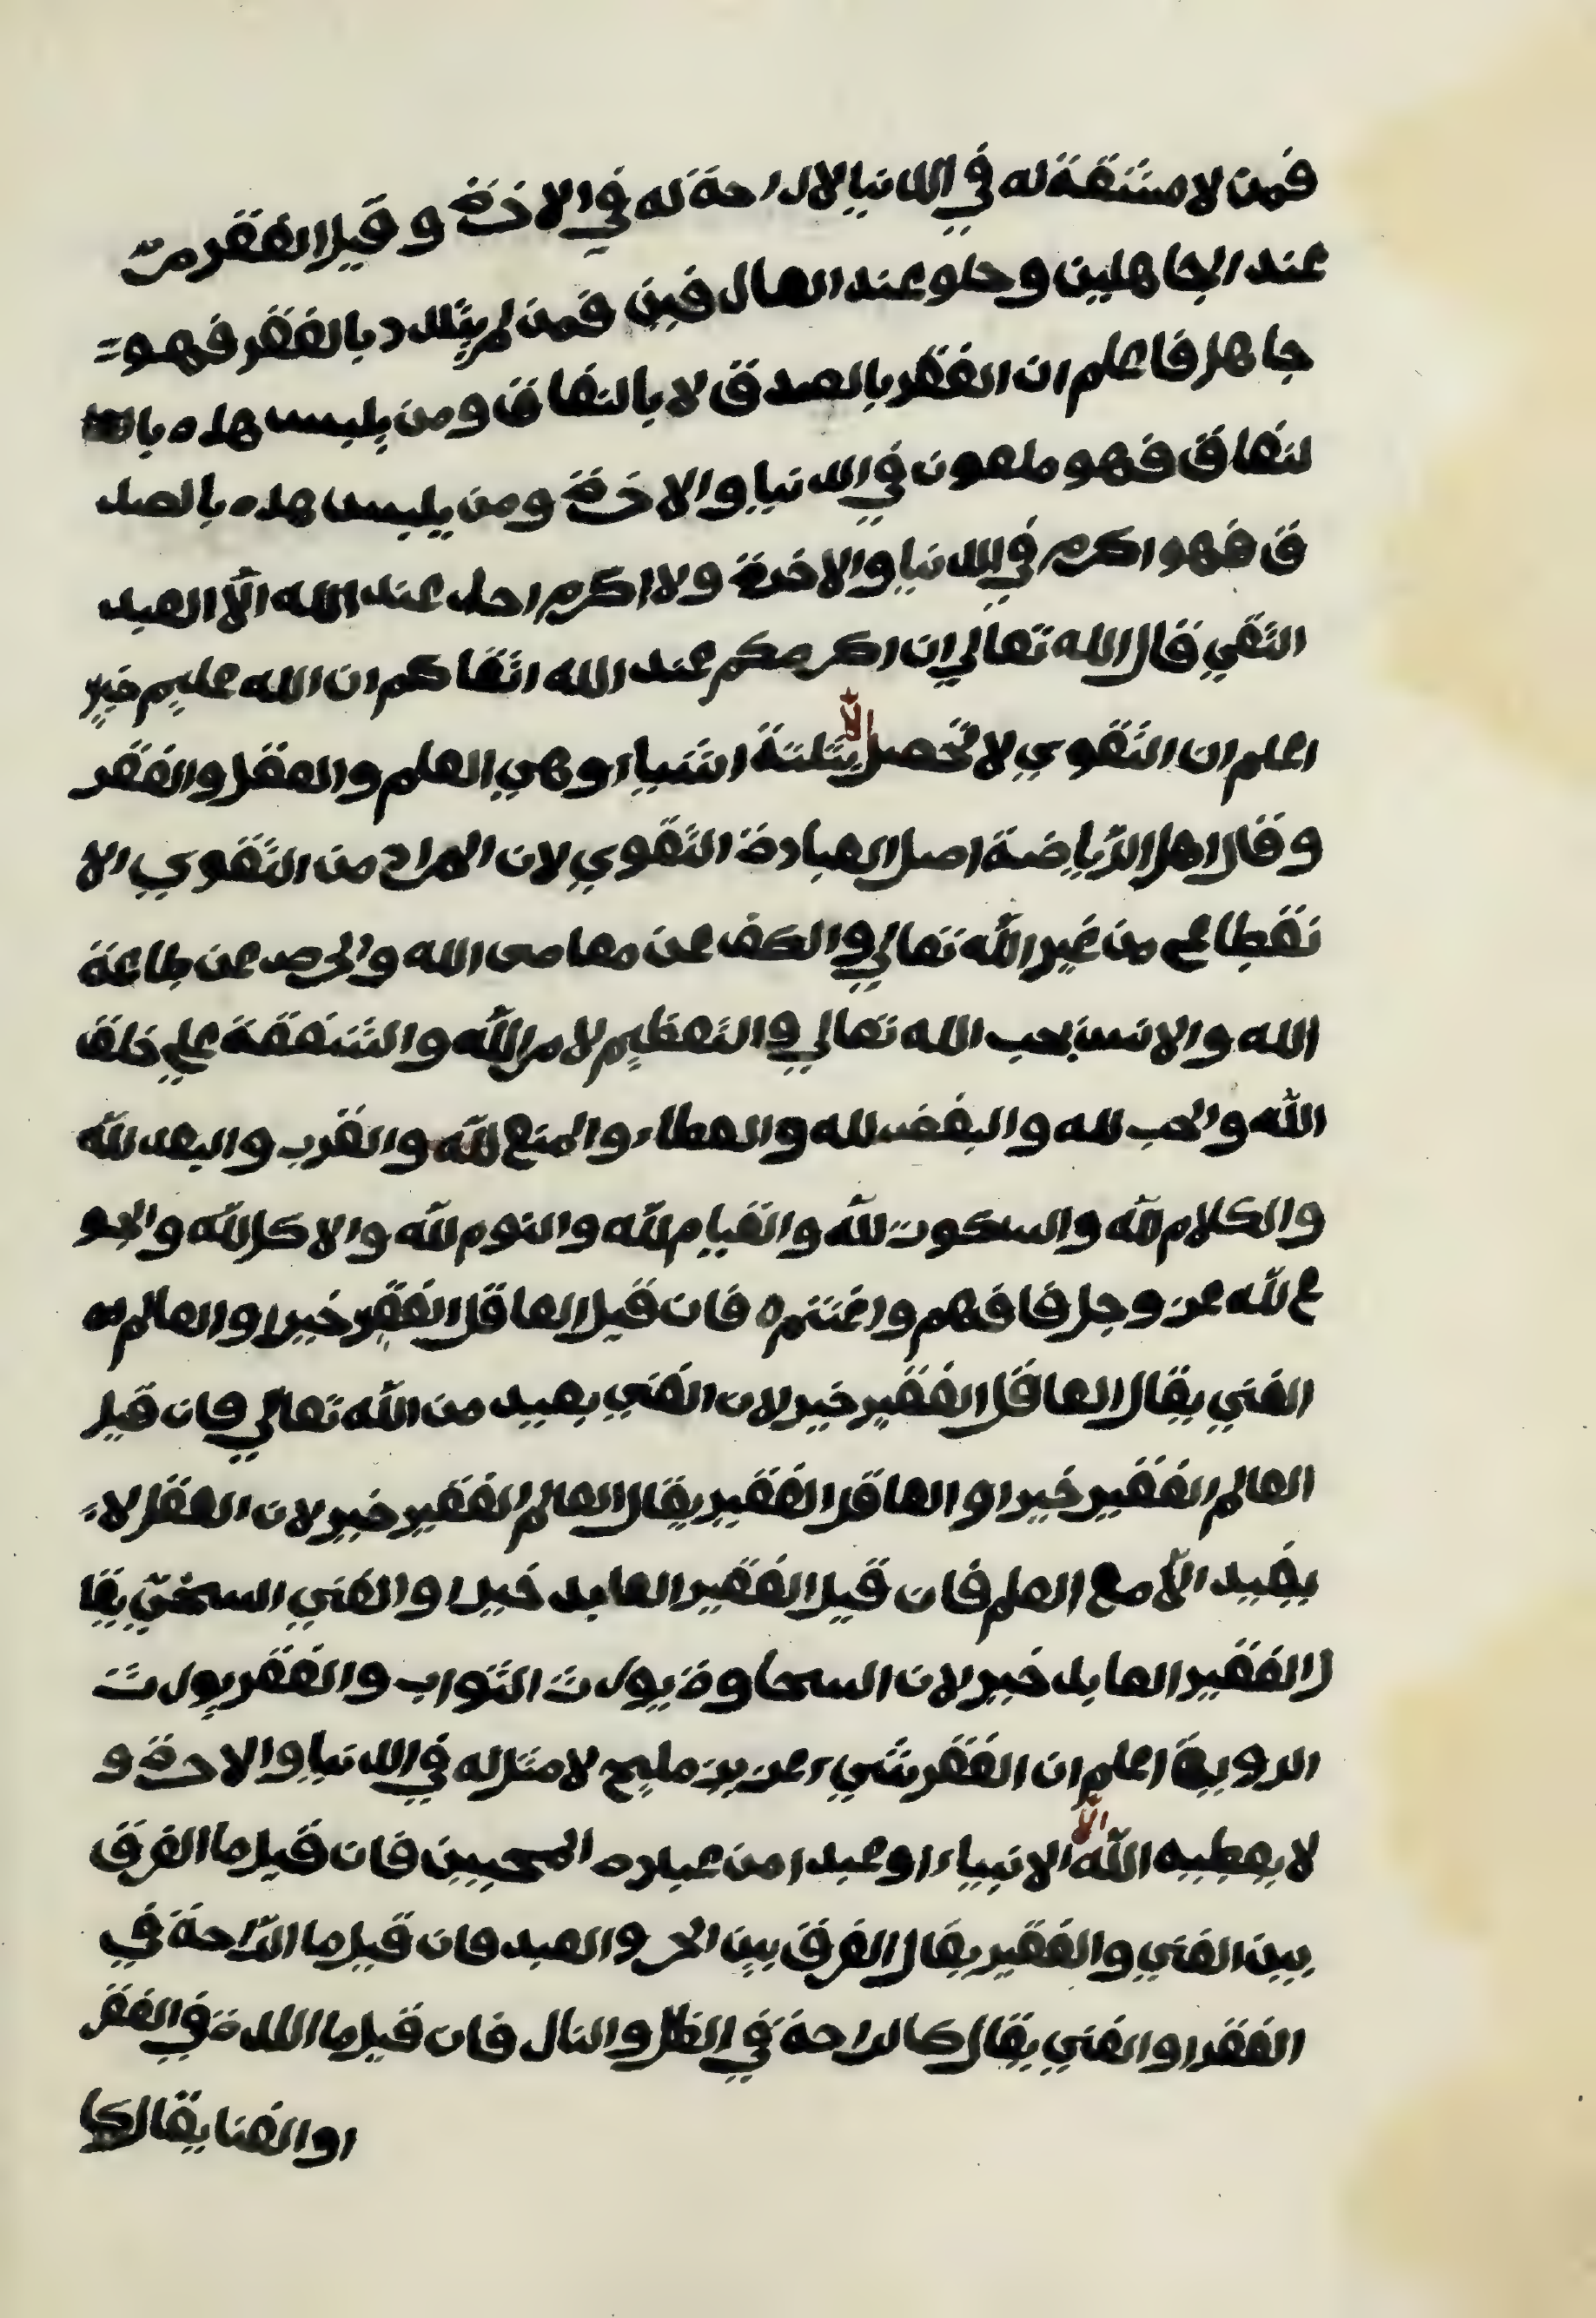 فمن لا مشقة له في الدنيا لا راحة له في الاخرة و قيل الفقر مرّ
عند الجاهلين و حلو عند العارفين فمن لم يتلدد بالفقر فهو
جاهل فاعلم ان الفقر بالصدق لا بالنفاق ومن يلبس هده با
لنفاق فهو ملعون في الدنيا والاخرة ومن يلبس هده بالصد
ق فهو اكرم في الدنيا والاخرة ولا اكرم احد عند الله الّا العبد
التقي قال الله تعالي ان اكرمكم عند الله اتقاكم ان الله عليم خبير
اعلم ان التقوي لا تحصل الّا بثلثة اشياء وهي العلم والعقل والفقر
وقال اهل الرّياضة اصل العبادة التقوي لان المراد من التقوي الا
نقطاع من غير الله تعالي والكف عن معاصى الله والحرص عن طاعة
الله والانس بحب الله تعالي والتعظيم لامر الله والشفقة علي خلق
الله والحب لله والبغض لله والعطاء والمنع لله والقرب والبعد لله
والكلام لله والسكوت لله والقيام لله والنوم لله والاكل لله والجو
ع لله عز وجل فافهم واغتنم فان قيل العاقل الفقير خير او العالم
الغني يقال العاقل الفقير خير لان الغني بعيد من الله تعالي فان قيل
العالم الفقير خير او العاقل الفقير يقال العالم الفقير خير لان العقل لا
يفيد الّا مع العلم فان قيل الفقير العابد خير او الغني السخيّ يقا
ل الفقير العابد خير لان السحاوة يورث الثواب والفقر يورث
الروية اعلم ان الفقر شيء عزيز مليح لا مثل له في الدنيا والاحرة و
لا يعطيه الله الّا الانبياء او عبدا من عباده المحبين فان قيل ما الفرق
بين الغني والفقير يقال الفرق بين الحر والعبد فان قيل ما الرّاحة في
الفقر او الغني يقال كالراحة في الظل والنار فان قيل ما اللدة في الفقر
او الغنا يقال كا